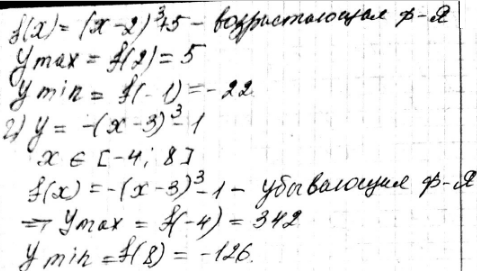 f(x) = (x-2)³+5 - возрастающая ф-я
y max = f(2) = 5
y min = f(-1) = -22
г) y = -(x-3)³-1
x ∈ [-4; 8]
f(x) = -(x-3)³-1 - убывающая ф-я
⇒ y max = f(-4) = 342
y min = f(8) = -126.